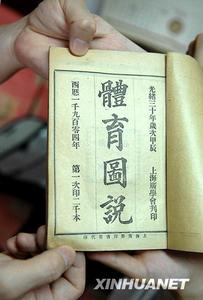 光緒三十年歲次甲辰 上海廣學會刊印
體育圖說
西歷一千九百零四年 第一次印二千本
XINHUANET